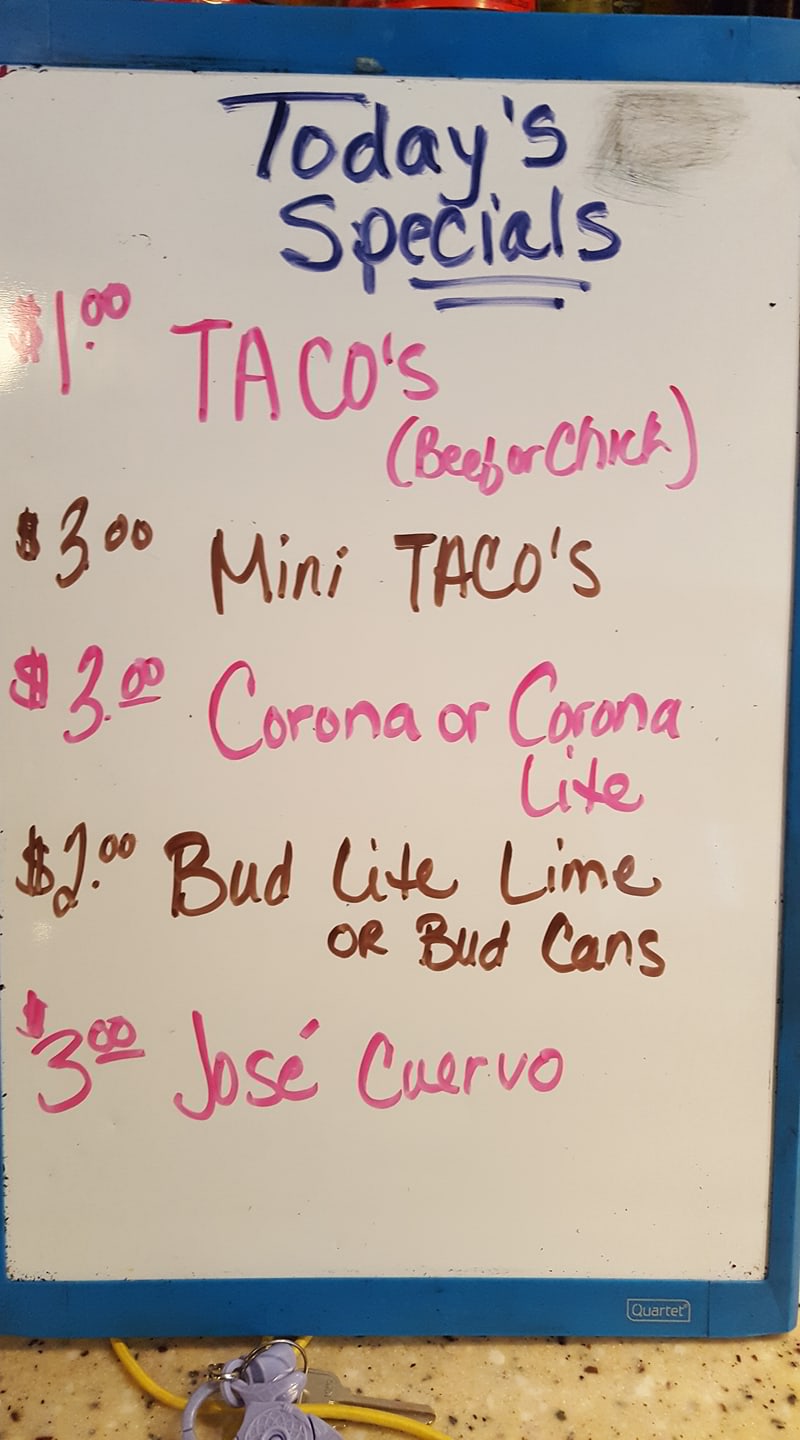 Today's
Specials
$1.00 TACO's
(Beef or Chick)
$3.00 Mini TACO's
$3.00 Corona or Corona
Lite
$2.00 Bud Lite Lime
OR Bud Cans
$3.00 José Cuervo
Quartet